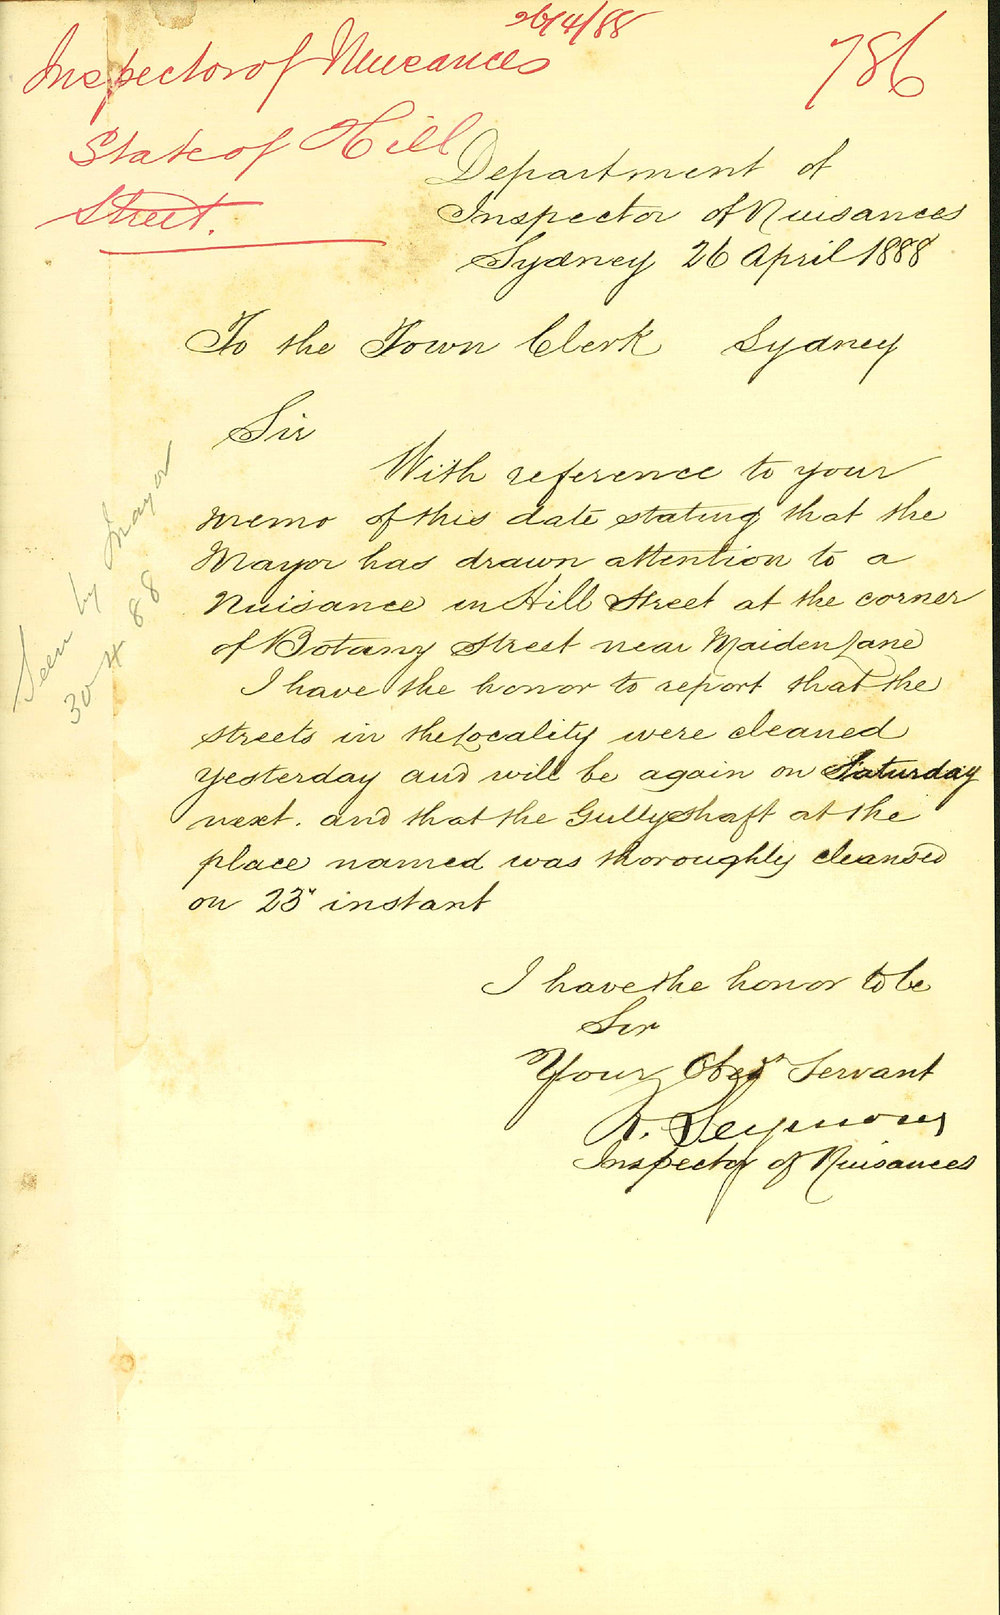 26/4/88
Inspector of Nuisances
786
State of Hill
Street.
Department of
Inspector of Nuisances
Sydney 26 April 1888
To the Town Clerk Sydney
Sir
With reference to your
memo of this date stating that the
Mayor has drawn attention to a
Nuisance in Hill Street at the corner
of Botany Street near Maiden Lane
I have the honor to report that the
streets in the Locality were cleaned
yesterday and will be again on Saturday
next. and that the Gullyshaft at the
place named was thoroughly cleansed
on 23rd instant
I have the honor to be
Sir
Your Obedt Servant
R. Seymour
Inspector of Nuisances
Seen by Mayor
30 4 88